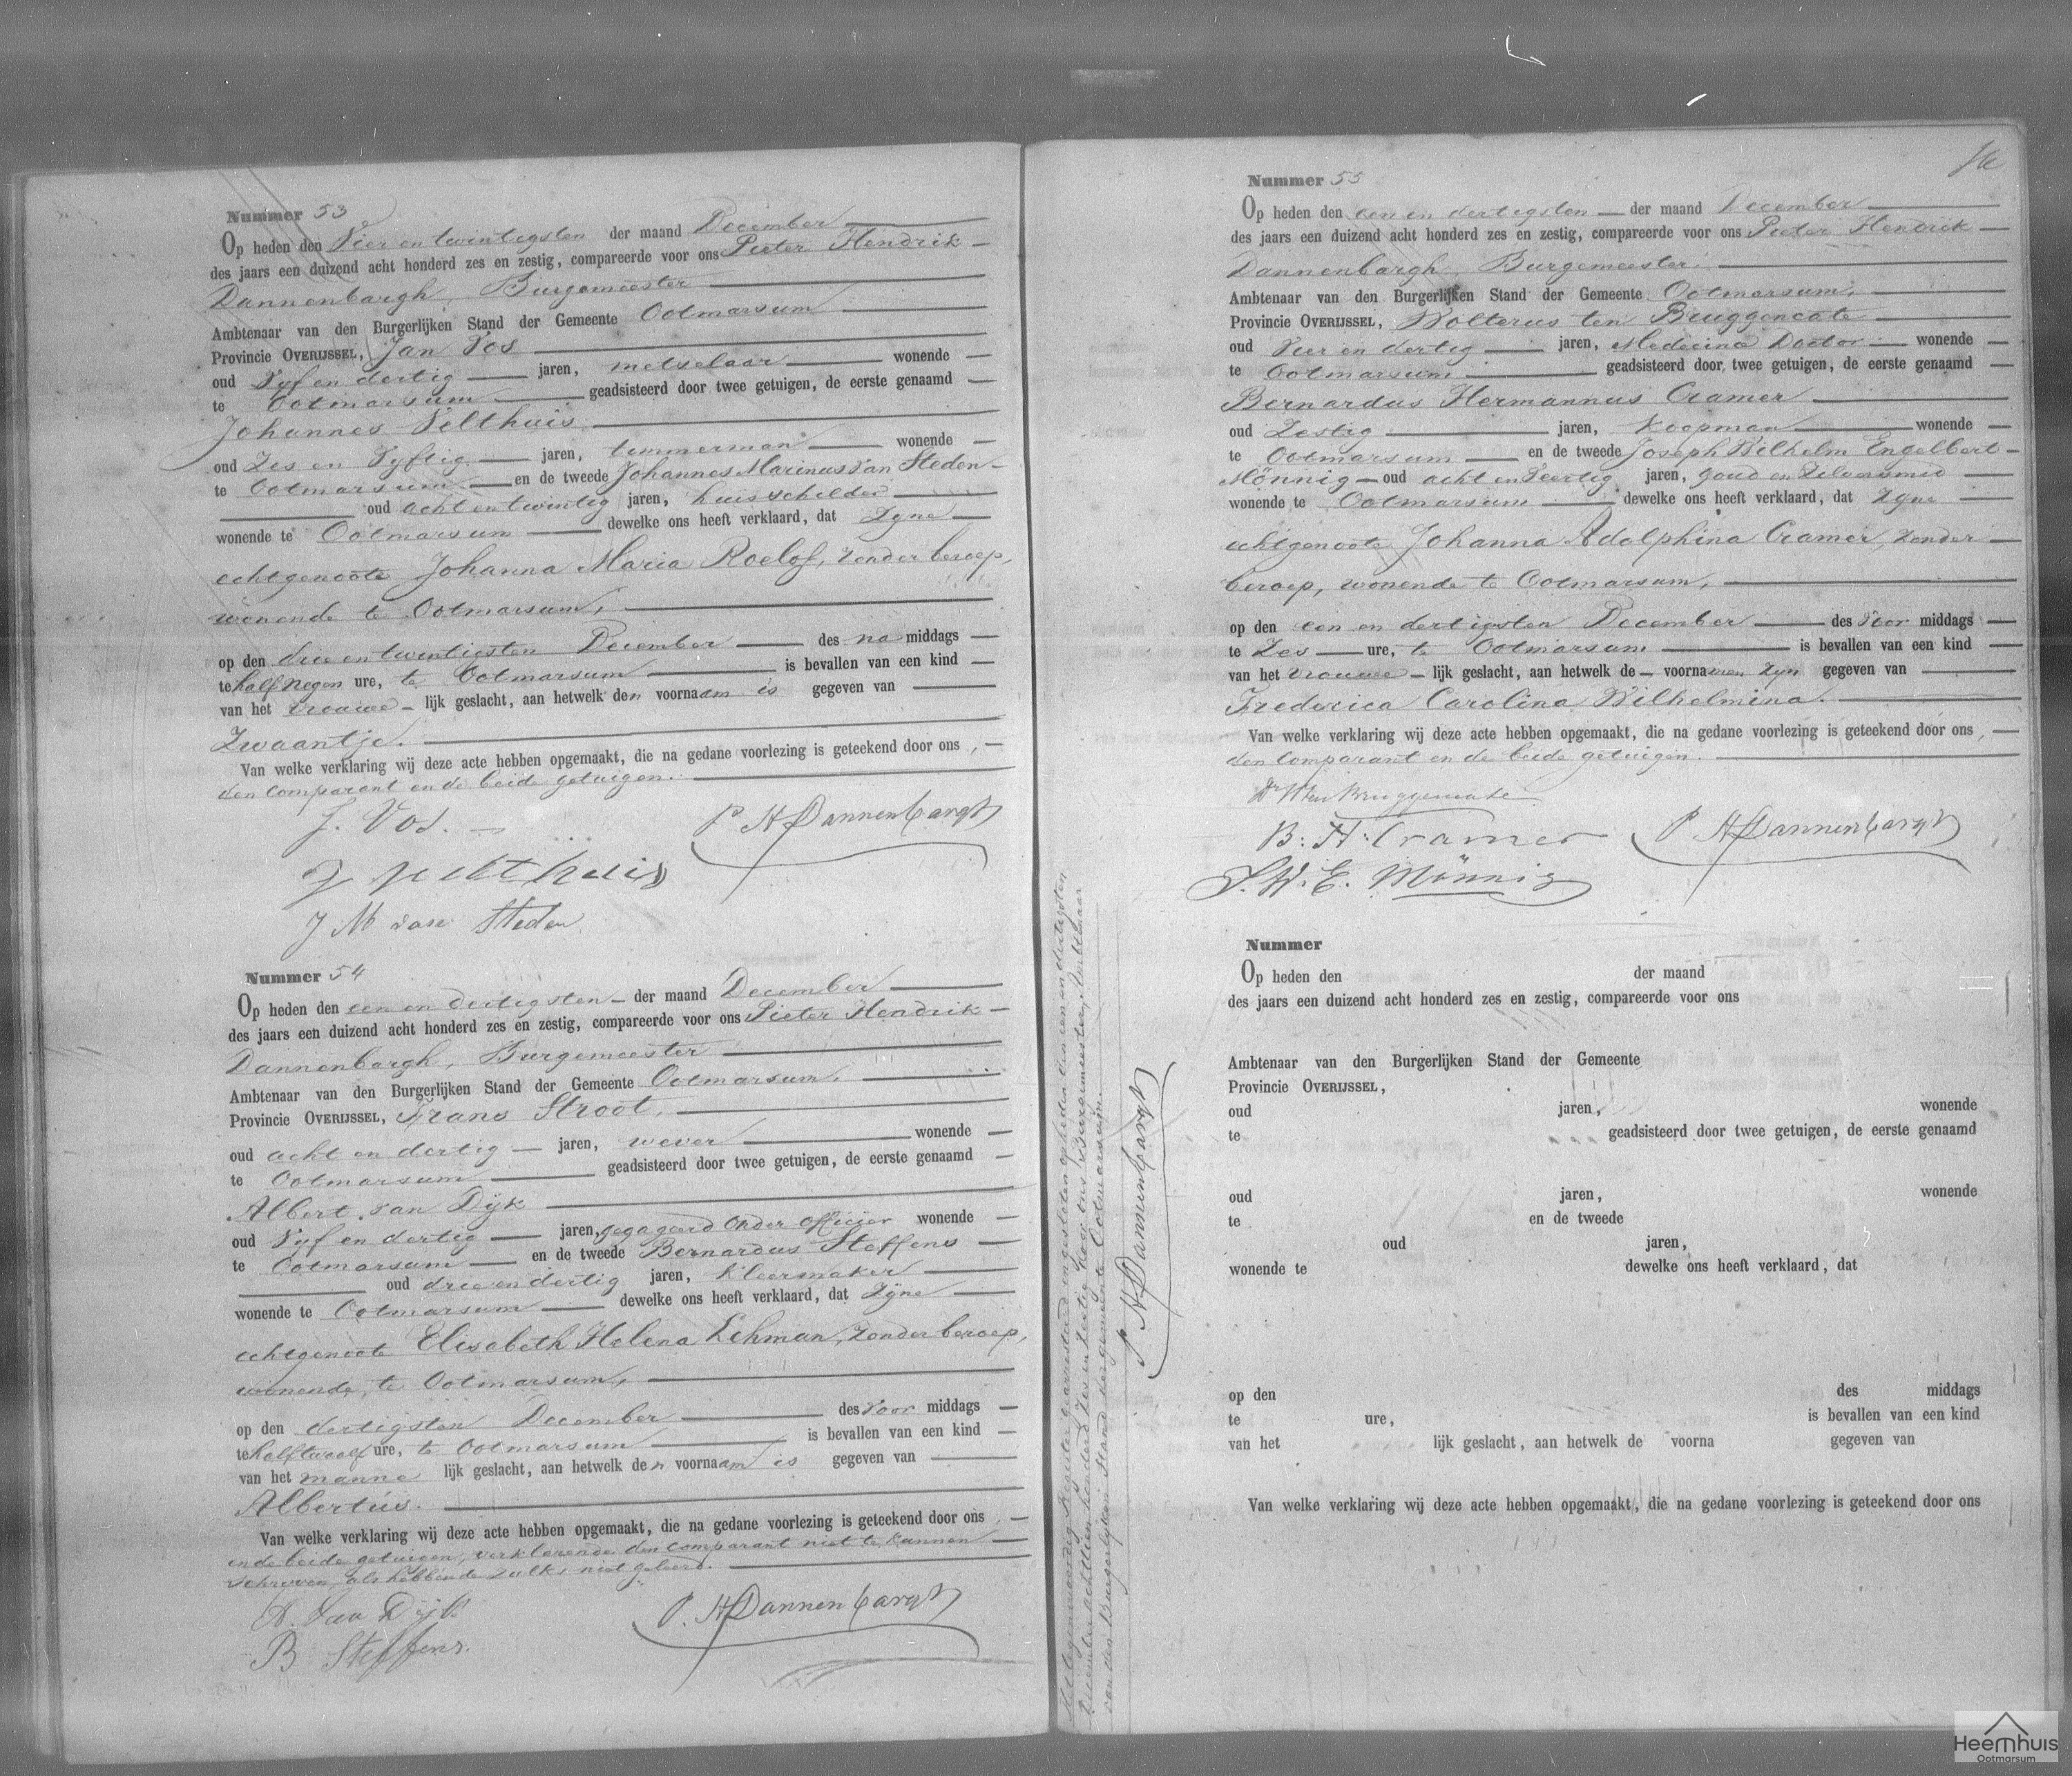 Nummer 53
Op heden den Vier en twintigsten der maand December
des jaars een duizend acht honderd zes en zestig, compareerde voor ons Pieter Hendrik
Dannenbargh, Burgemeester
Ambtenaar van den Burgerlijken Stand der Gemeente Ootmarsum
Provincie OVERIJSSEL, Jan Vos
oud Vyf en dertig jaren, metselaar wonende
te Ootmarsum geadsisteerd door twee getuigen, de eerste genaamd
Johannes Velthuis
oud Zes en Vyftig jaren, temmerman wonende
te Ootmarsum en de tweede Johannes Marinus van Steden
oud acht en twintig jaren, huisschilder
wonende te Ootmarsum dewelke ons heeft verklaard, dat Zyne
echtgenoote Johanna Maria Roelof, zonder beroep,
wonende te Ootmarsum,
op den drie en twentigsten December des na middags
te half negen ure, te Ootmarsum is bevallen van een kind
van het vrouwe lijk geslacht, aan hetwelk den voornaam is gegeven van
Zwaantje.
Van welke verklaring wij deze acte hebben opgemaakt, die na gedane voorlezing is geteekend door ons,
den Comparant en de beide getuigen.
J. Vos. P H Dannenbargh
J Velthuis
J M van Steden
Nummer 54
Op heden den een en dertigsten der maand December
des jaars een duizend acht honderd zes en zestig, compareerde voor ons Pieter Hendrik
Dannenbargh, Burgemeester
Ambtenaar van den Burgerlijken Stand der Gemeente Ootmarsum,
Provincie OVERIJSSEL, Frans Stroot,
oud acht en dertig jaren, wever wonende
te Ootmarsum geadsisteerd door twee getuigen, de eerste genaamd
Albert van Dijk
oud Vyf en dertig jaren, gegageerd Onder Officier wonende
te Ootmarsum en de tweede Bernardus Steffens
oud drie en dertig jaren, Kleermaker
wonende te Ootmarsum dewelke ons heeft verklaard, dat Zyne
echtgenoote Elisabeth Helena Lehman, zonder beroep,
wonende, te Ootmarsum,
op den dertigsten December des Voor middags
te half twaalf ure, te Ootmarsum is bevallen van een kind
van het manne lijk geslacht, aan hetwelk den voornaam is gegeven van
Albertus.
Van welke verklaring wij deze acte hebben opgemaakt, die na gedane voorlezing is geteekend door ons,
en de beide getuigen, verklarende den Comparant niet te kunnen
schryven, als hebbende zulks niet geleerd.
A. van Dijk P. H Dannenbargh
B Steffens.
Het tegenwoordig Register gearresteerd en gesloten op heden den een en dertigsten
December achttien honderd Zes en Zestig door ons, Burgemeester, Ambtenaar
van den Burgerlyken Stand der gemeente Ootmarsum.
P H Dannenbargh
Nummer 55
Op heden den een en dertigsten der maand December
des jaars een duizend acht honderd zes en zestig, compareerde voor ons Pieter Hendrik
Dannenbargh, Burgemeester
Ambtenaar van den Burgerlijken Stand der Gemeente Ootmarsum,
Provincie OVERIJSSEL, Wolterus ten Bruggencate
oud Vier en dertig jaren, Medicina Doctor wonende
te Ootmarsum geadsisteerd door twee getuigen, de eerste genaamd
Bernardus Hermannus Cramer
oud Zestig jaren, Koopman wonende
te Ootmarsum en de tweede Joseph Wilhelm Engelbert
Mönnig oud acht en Veertig jaren, goud en Zilversmid
wonende te Ootmarsum dewelke ons heeft verklaard, dat Zyne
echtgenoote Johanna Adolphina Cramer, zonder
beroep, wonende te Ootmarsum,
op den een en dertigsten December des Voor middags
te Zes ure, te Ootmarsum is bevallen van een kind
van het vrouwe lijk geslacht, aan hetwelk de voornamen zyn gegeven van
Frederica Carolina Wilhelmina.
Van welke verklaring wij deze acte hebben opgemaakt, die na gedane voorlezing is geteekend door ons,
den Comparant en de beide getuigen.
Dr W ten Bruggencate
B: H: Cramer P H Dannenbargh
J. W. E. Mönnig
Nummer
Op heden den der maand
des jaars een duizend acht honderd zes en zestig, compareerde voor ons
Ambtenaar van den Burgerlijken Stand der Gemeente
Provincie OVERIJSSEL,
oud jaren, wonende
te geadsisteerd door twee getuigen, de eerste genaamd
oud jaren, wonende
te en de tweede
oud jaren,
wonende te dewelke ons heeft verklaard, dat
op den des middags
te ure, is bevallen van een kind
van het lijk geslacht, aan hetwelk de voorna gegeven van
Van welke verklaring wij deze acte hebben opgemaakt, die na gedane voorlezing is geteekend door ons
Heemhuis
Ootmarsum